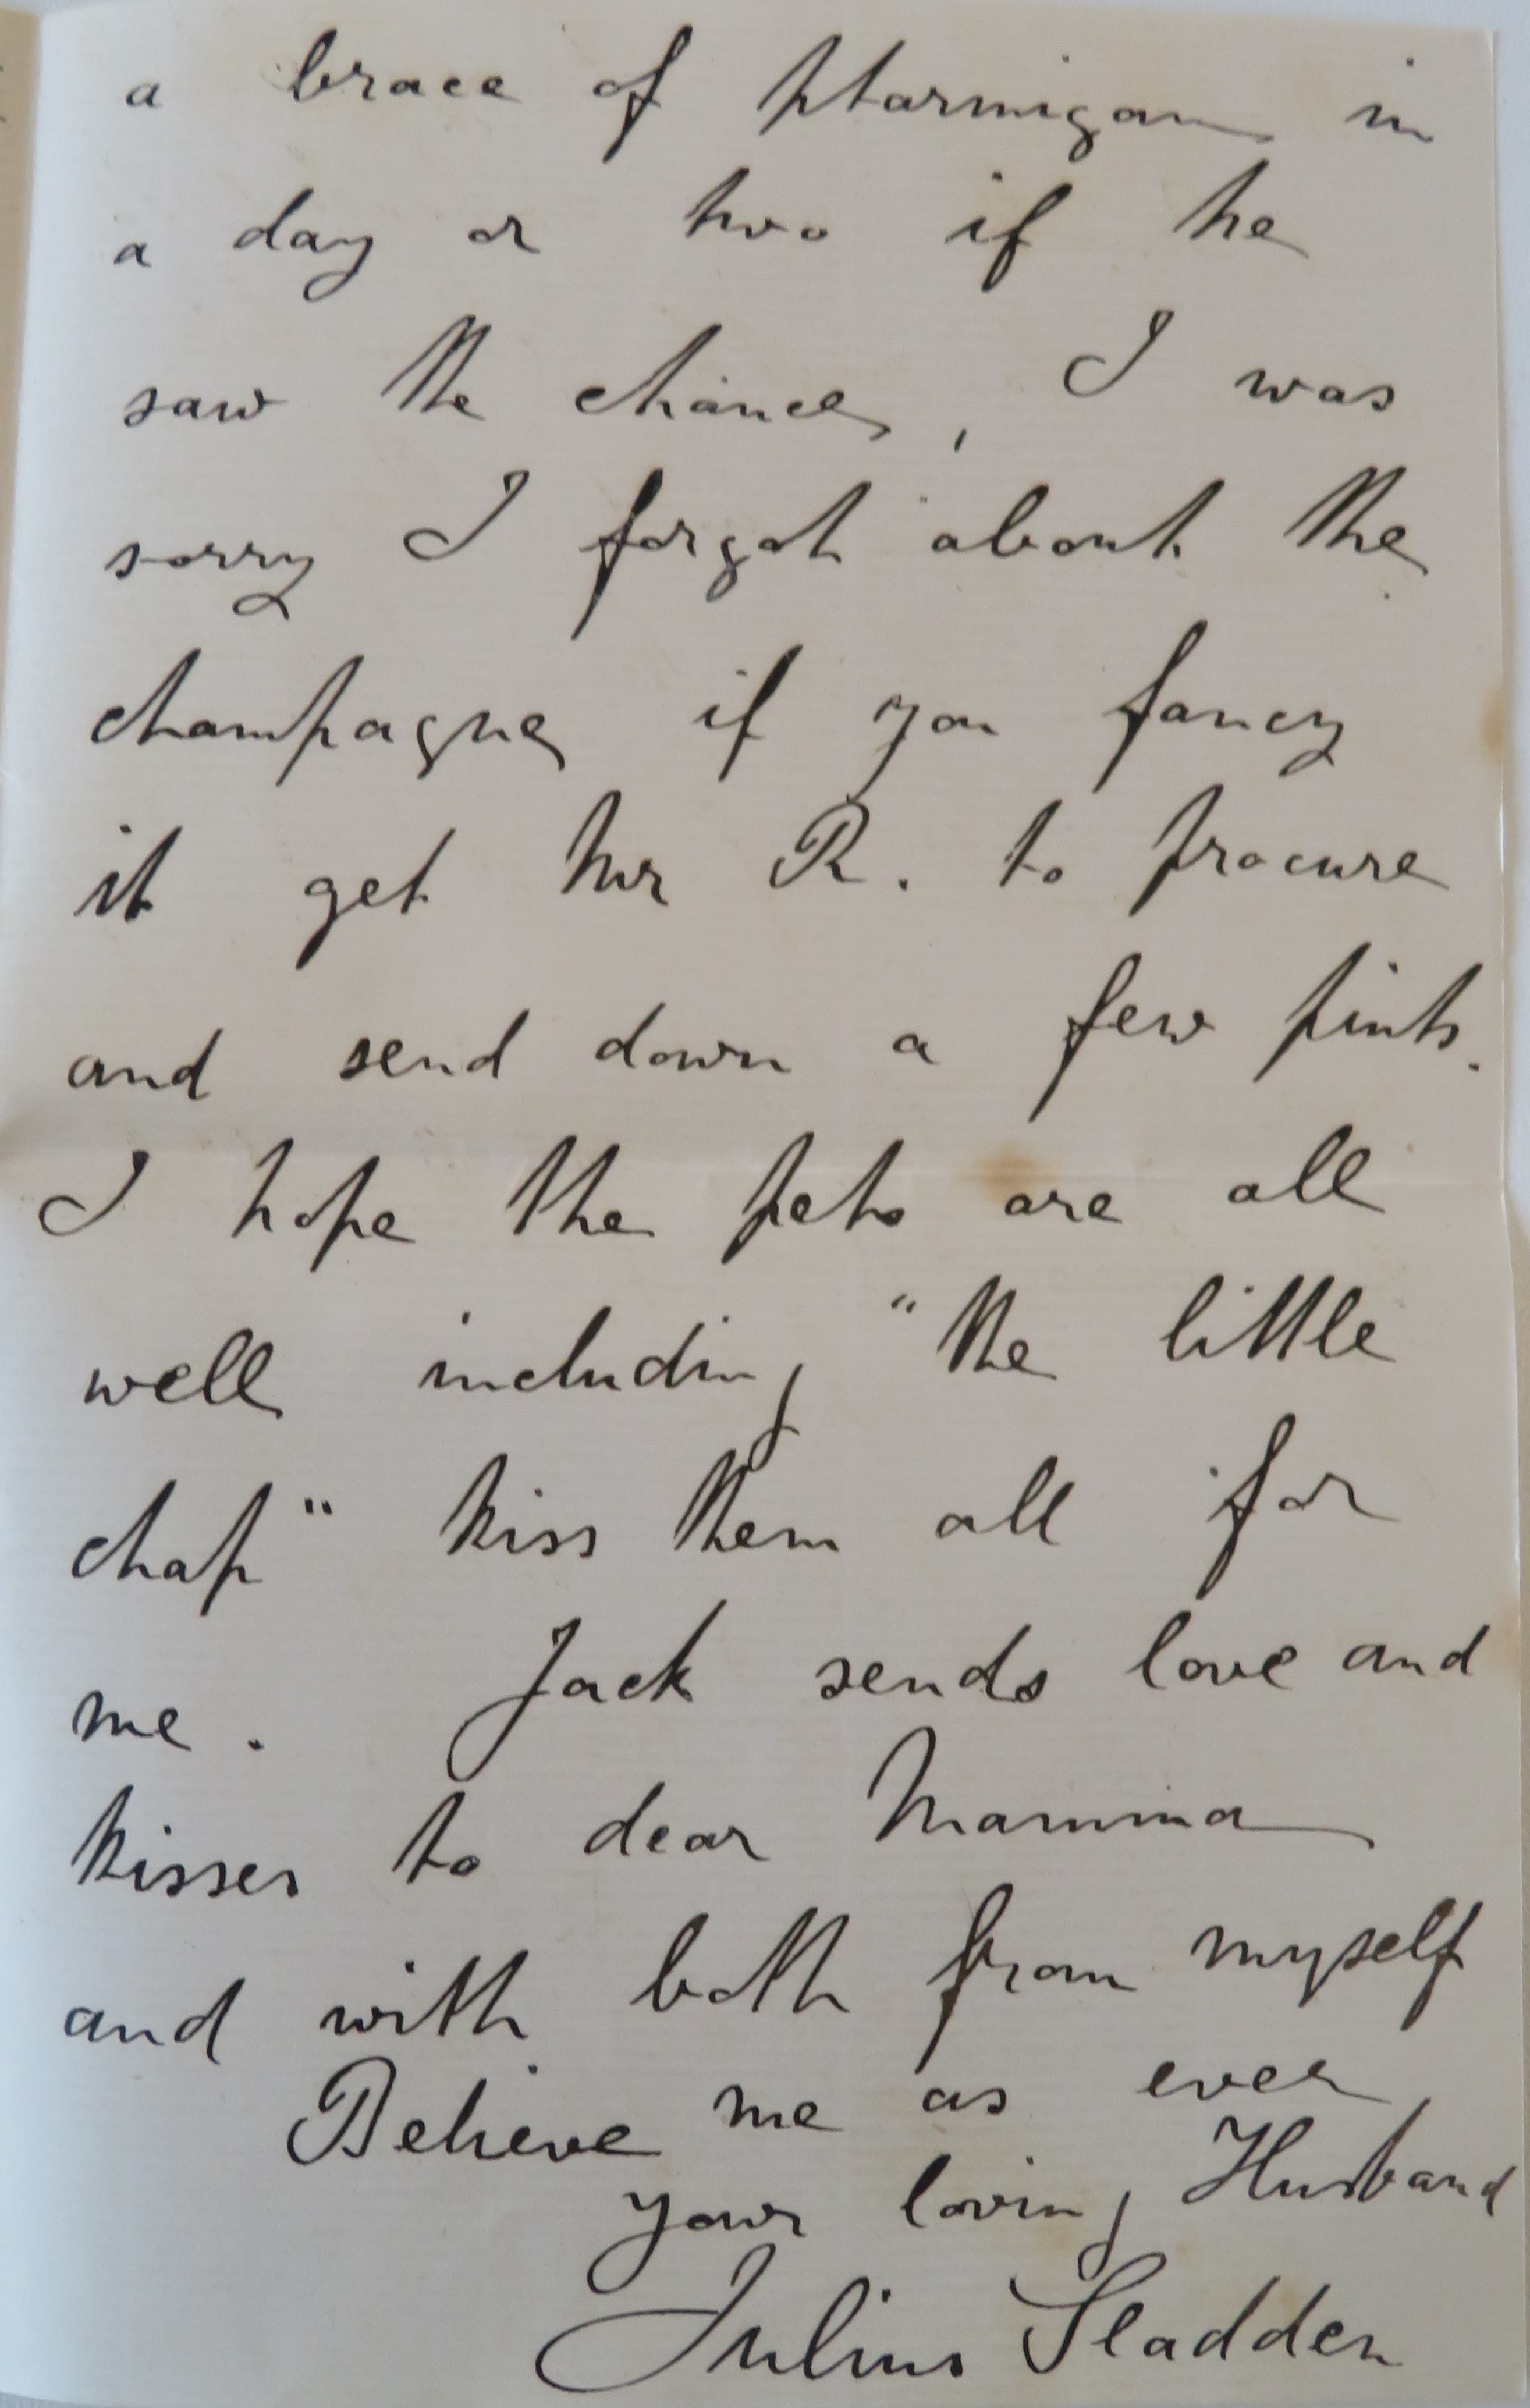 a brace of ptarmigan in
a day or two if he
saw the chance, I was
sorry I forgot about the
champagne if you fancy
it get Mr R. to procure
and send down a few pints.
I hope the pets are all
well including "the little
chap" kiss them all for
me. Jack sends love and
kisses to dear Mamma
and with both from myself
Believe me as ever,
your loving Husband
Julius Sladden